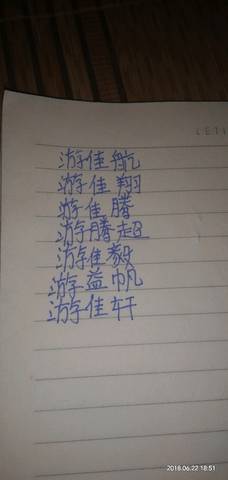 LETT
游佳航
游佳翔
游佳腾
游腾超
游佳毅
游益帆
游佳轩
2018.06.22 18:51